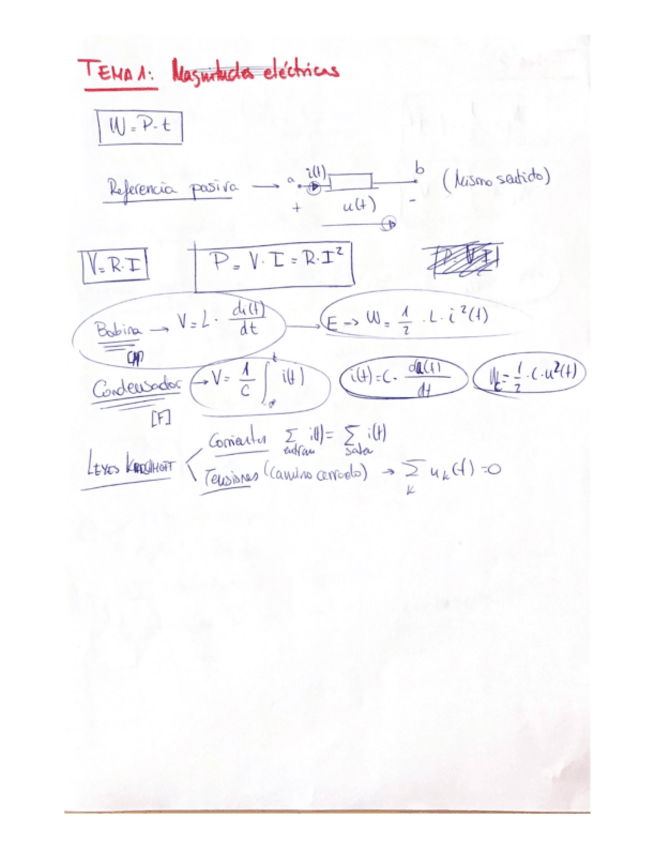 TEMA 1: Magnitudes eléctricas
W = P·t
Referencia pasiva → a i(t) b (Mismo sentido)
+ u(t) -
V = R·I P = V·I = R·I²
Bobina → V = L · di(t)/dt → E → W = 1/2 · L · i²(t)
[H]
Condensador → V = 1/C ∫ i(t) i(t) = C · du(t)/dt Wc = 1/2 · C · u²(t)
[F]
LEYES KIRCHHOFF Corrientes Σ i(t) = Σ i(t)
entran salen
Tensiones (camino cerrado) → Σ uk(t) = 0
k